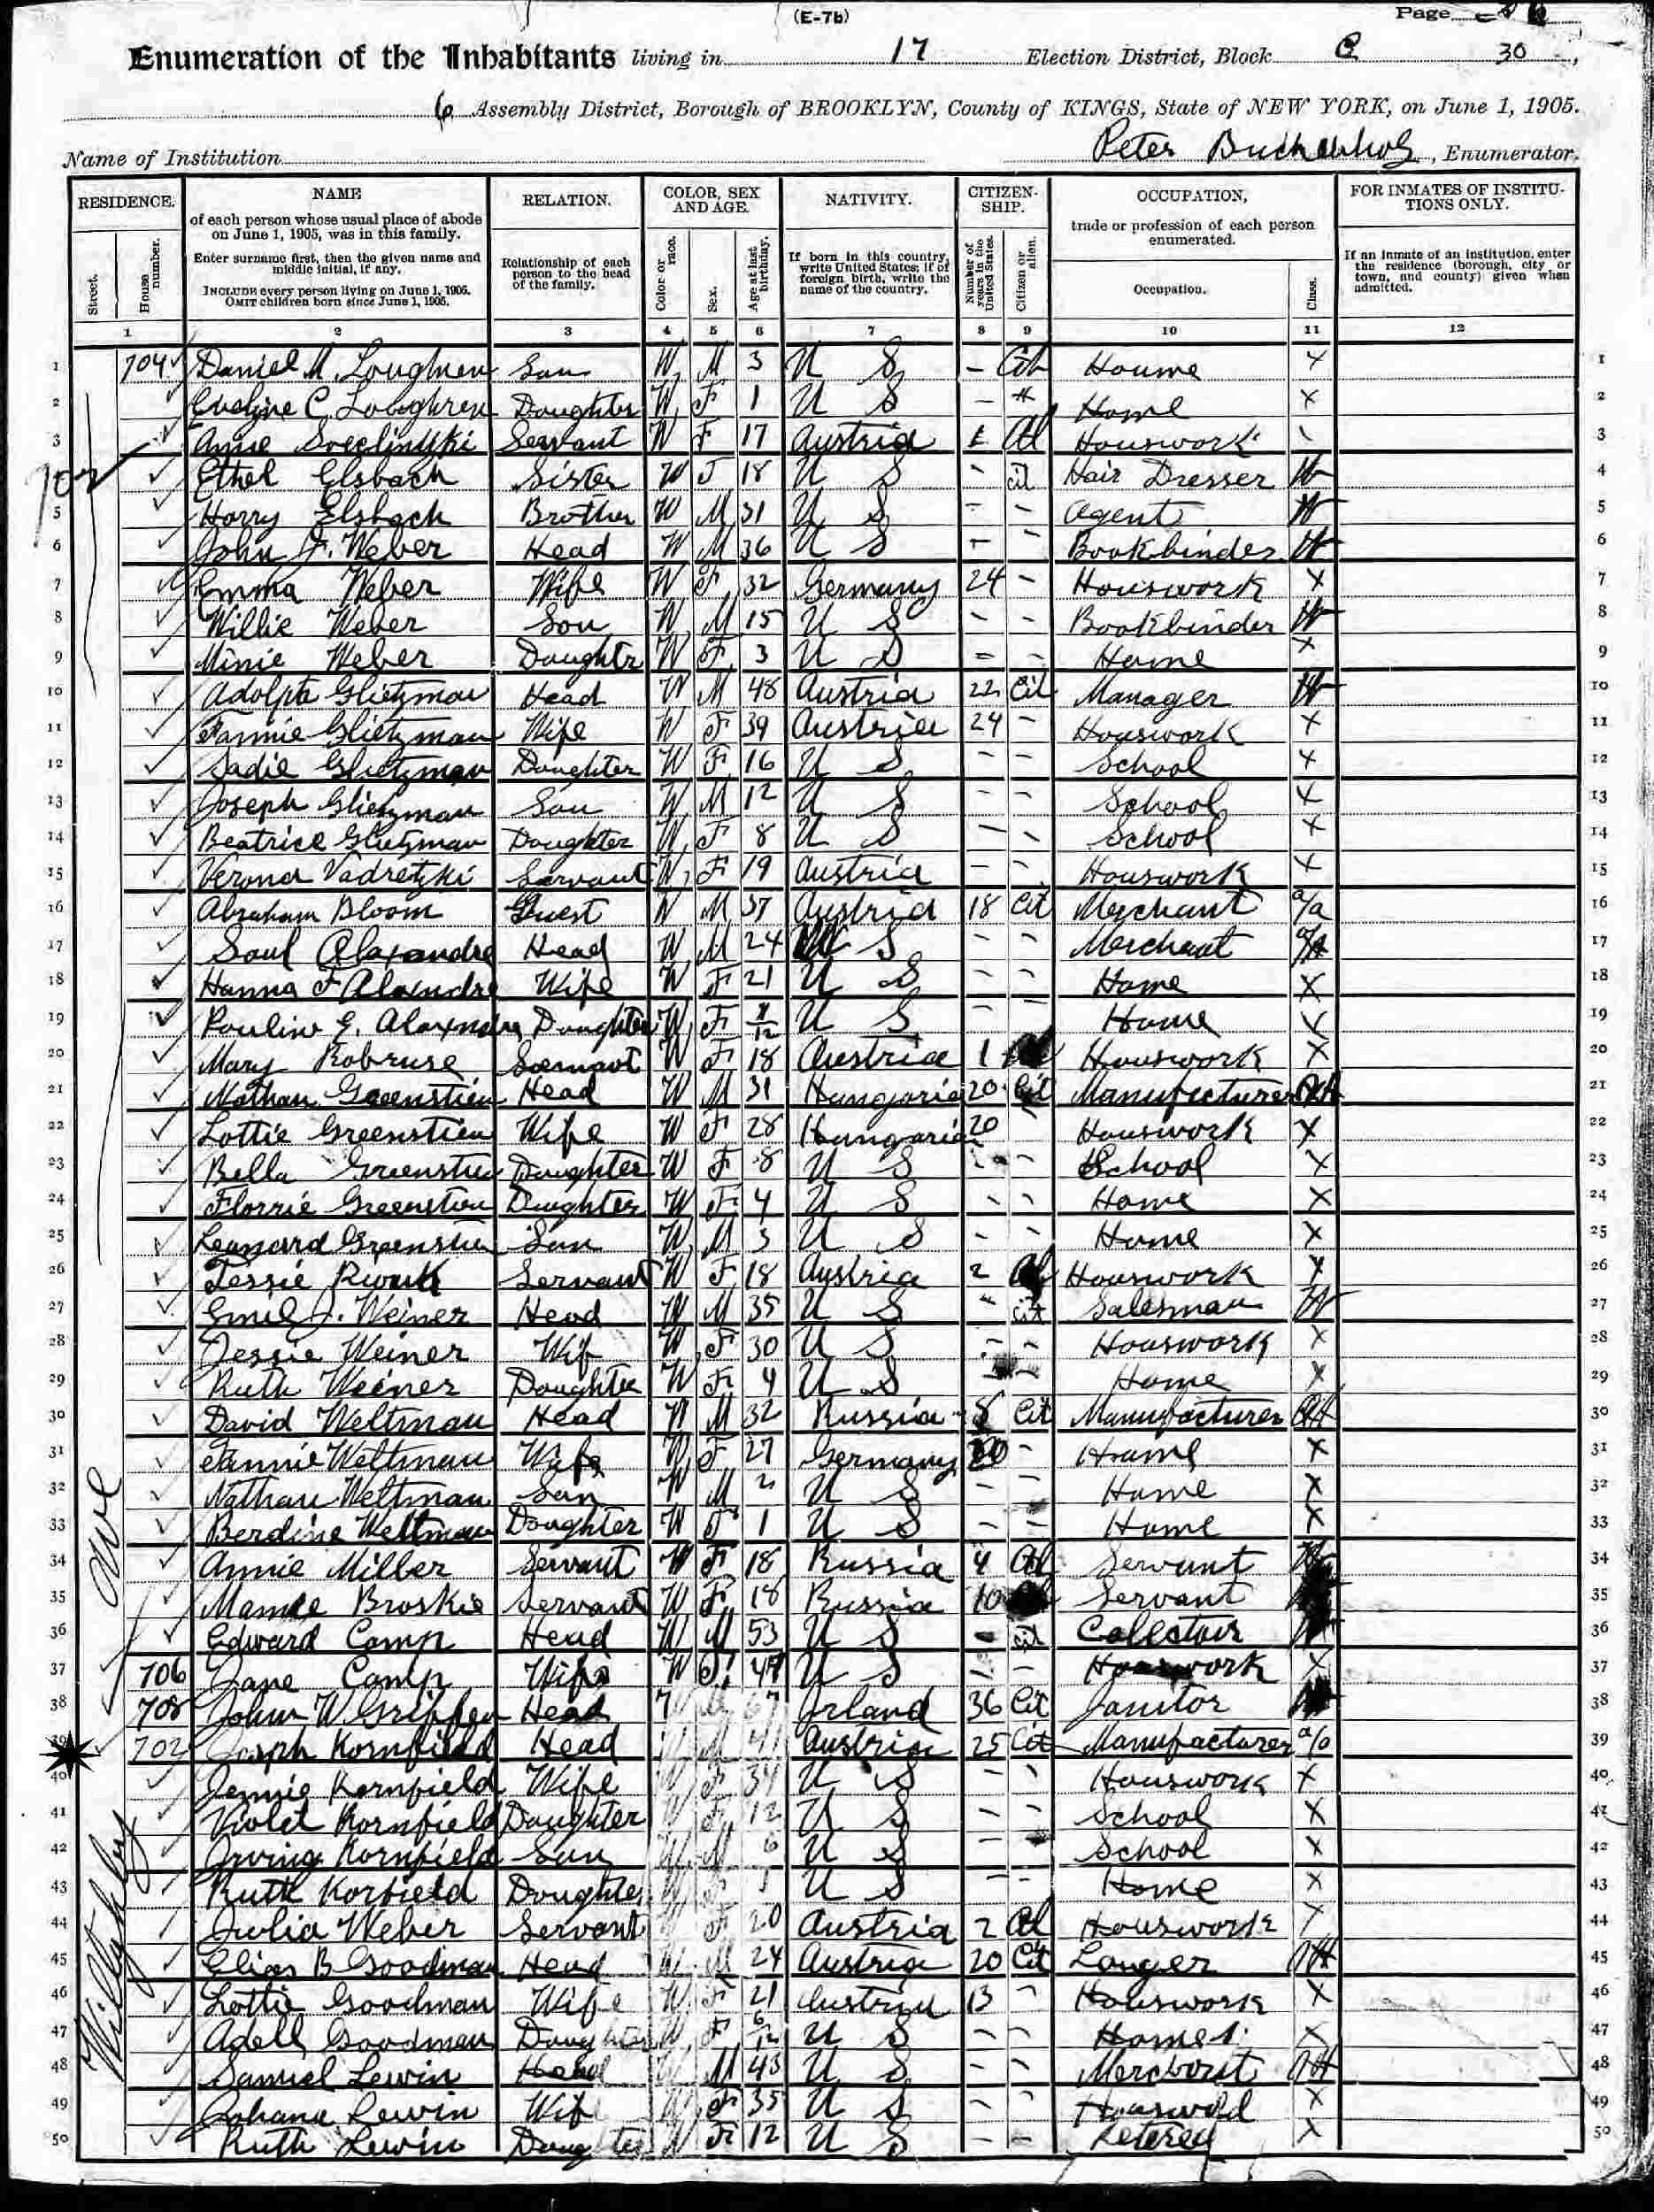 (E-7b)
Page
Enumeration of the Inhabitants living in 17 Election District, Block C 30,
6 Assembly District, Borough of BROOKLYN, County of KINGS, State of NEW YORK, on June 1, 1905.
Name of Institution Peter, Enumerator.
RESIDENCE. NAME RELATION. COLOR, SEX AND AGE. NATIVITY. CITIZEN-SHIP. OCCUPATION, FOR INMATES OF INSTITU-TIONS ONLY.
Street. House number. of each person whose usual place of abode on June 1, 1905, was in this family. Enter surname first, then the given name and middle initial, if any. INCLUDE every person living on June 1, 1905. OMIT children born since June 1, 1905. Relationship of each person to the head of the family. Color or race. Sex. Age at last birthday. If born in this country, write United States; if of foreign birth, write the name of the country. Number of years in the United States. Citizen or alien. trade or profession of each person enumerated. Occupation. Class. If an inmate of an institution, enter the residence (borough, city or town, and county) given when admitted.
1 2 3 4 5 6 7 8 9 10 11 12
1 704 Daniel M. Loughren Son W M 3 U S - Cit Houme X 1
2 Eveline C. Loughren Doughter W F 1 U S - Home X 2
3 Annie Servant W F 17 Austria Al Houswork 3
702
4 Ethel Elsbach Sister W F 18 U S - cit Hair Dresser W 4
5 Harry Elsbach Brother W M 31 U S - - Agent W 5
6 John J. Weber Head W M 36 U S - Bookbinder W 6
7 Emma Weber Wife W F 32 Germany 24 - Houswork X 7
8 Willie Weber Son W M 15 U S - - Bookbinder W 8
9 Minie Weber Doughtr W F 3 U S - - Home X 9
10 Adolph Glietzman Head W M 48 Austria 22 Cit Manager W 10
11 Fannie Glietzman Wife W F 39 Austria 24 - Houswork X 11
12 Sadie Glietzman Doughter W F 16 U S - - School X 12
13 Joseph Glietzman Son W M 12 U S - - School X 13
14 Beatrice Glietzman Doughter W F 8 U S - - School X 14
15 Verona Vadretzki Servant W F 19 Austria - - Houswork X 15
16 Abraham Bloom Guest W M 37 Austria 18 Cit Merchant a/a 16
17 Saul Alaxandre Head W M 24 U S - - Merchant 17
18 Hanna F Alaxndre Wife W F 21 U S - - Home X 18
19 Pauline E. Alaxndre Doughter W F U S - - Home X 19
20 Mary Kobruse W F 18 Austria 1 Houswork X 20
21 Nathan Greenstien Head W M 31 Hungaria 20 Cit Manufecturer 21
22 Lottie Greenstien Wife W F 28 Hungaria 20 Houswork X 22
23 Bella Greenstien Doughter W F 8 U S - - School X 23
24 Florrie Greenstien Doughter W F 4 U S - - Home X 24
25 Leanard Greenstien Son W M 3 U S - - Home X 25
26 Tessie Servant W F 18 Austria 2 Al Houswork X 26
27 Emil J. Weiner Head W M 35 U S - cit Salesman W 27
28 Jessie Weiner Wif W F 30 U S - - Houswork X 28
29 Ruth Weiner Doughter W F 4 U S - Home X 29
30 David Weltman Head W M 32 Russia 8 Cit Manufacturer 30
31 Fannie Weltman Wife W F 27 Germany 20 - Home X 31
32 Nathan Weltman Son W M 2 U S - - Home X 32
33 Berdine Weltman Doughter W F 1 U S - - Home X 33
34 Annie Milber Servant W F 18 Russia 4 Al Servant 34
35 Mamie Broskie Servant W F 18 Russia 10 Servant 35
36 Edward Camp Head W M 53 U S - cit Collector 36
37 706 Jane Camp Wife W F 47 U S - - Houswork X 37
38 708 John W. Griffen Head W M 67 Irland 36 Cit Janitor 38
39 702 Joseph Kornfield Head W M 41 Austria 25 Cit Manufacturer a/o 39
40 Jennie Kornfield Wife W F 34 U S - - Houswork X 40
41 Violet Kornfield Doughter W F 12 U S - - School X 41
42 Irving Kornfield Son W M 6 U S - School X 42
43 Ruth Korfield Doughter W F 1 U S - - Home X 43
44 Julia Weber Servant W F 20 Austria 2 Al Houswork X 44
45 Elias B Goodman Head W M 24 Austria 20 Cit Lawyer 45
46 Lottie Goodman Wife W F 21 Austria 13 - Houswork X 46
47 Adell Goodman Doughter W F 6/12 U S - - Home X 47
48 Samuel Lewin Head W M 43 U S - - Merchant 48
49 Johana Lewin Wif W F 35 U S - - X 49
50 Ruth Lewin Doughter W F 12 U S - - X 50
Willughby Ave